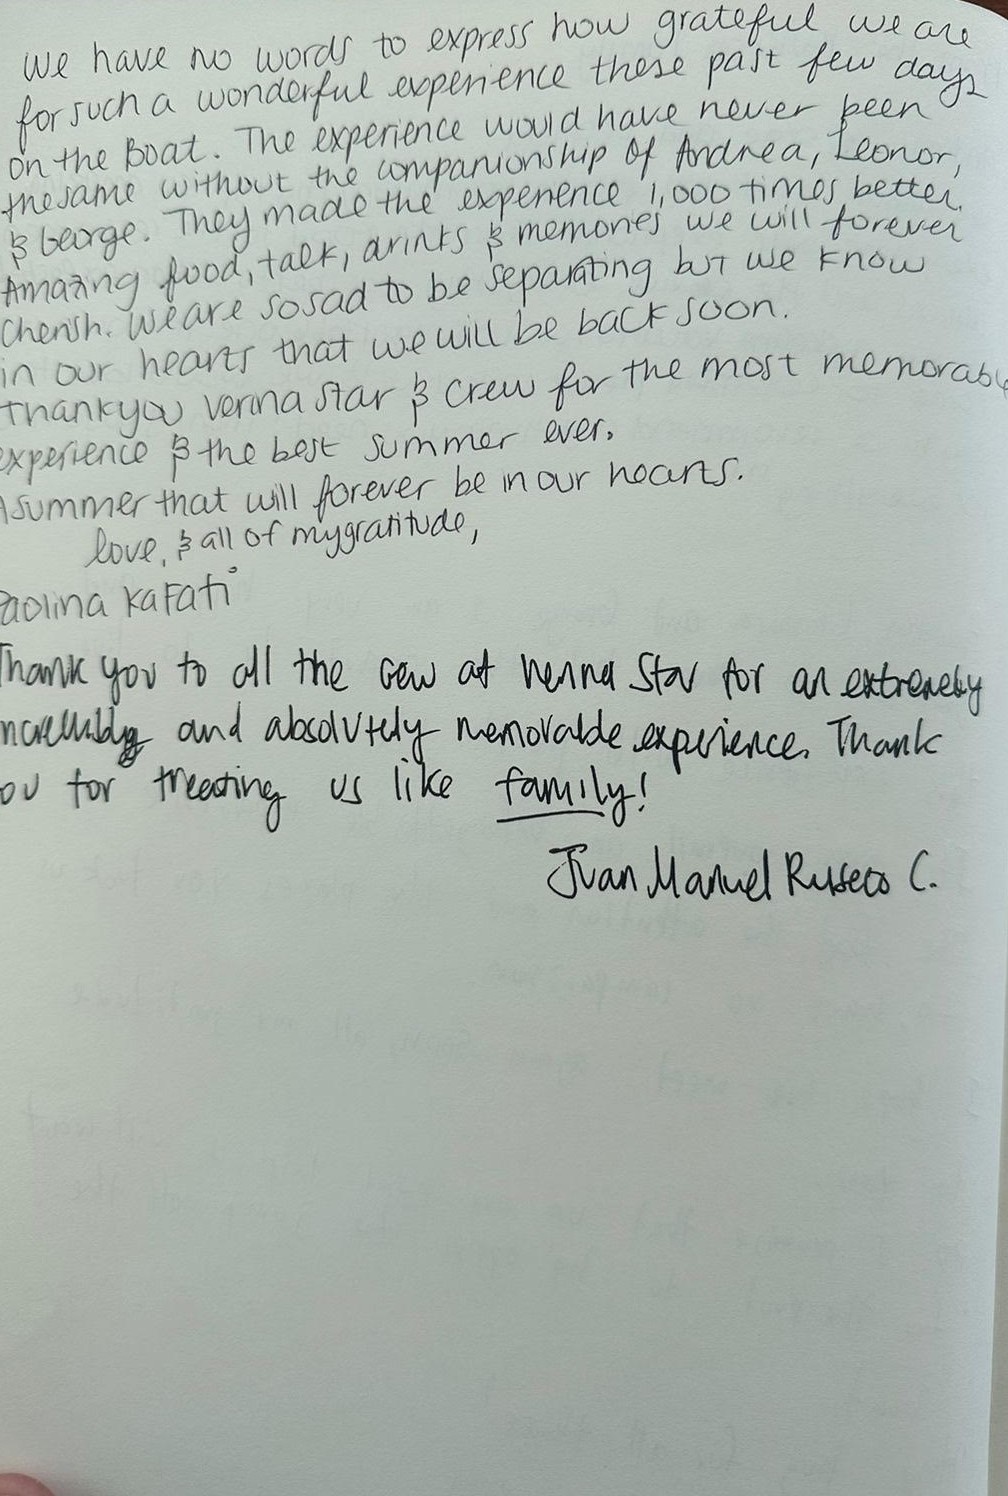 We have no words to express how grateful we are
for such a wonderful experience these past few days
on the Boat. The experience would have never been
the same without the companionship of Andrea, Leonor,
& George. They made the experience 1,000 times better.
Amazing food, talk, drinks & memories we will forever
cherish. We are so sad to be separating but we know
in our hearts that we will be back soon.
Thank you Venna Star & Crew for the most memorable
experience & the best summer ever.
A summer that will forever be in our hearts.
love, & all of my gratitude,
Paolina Kafati
Thank you to all the crew at Venna Star for an extremely
incredibly and absolutely memorable experience. Thank
you for treating us like family!
Juan Manuel C.